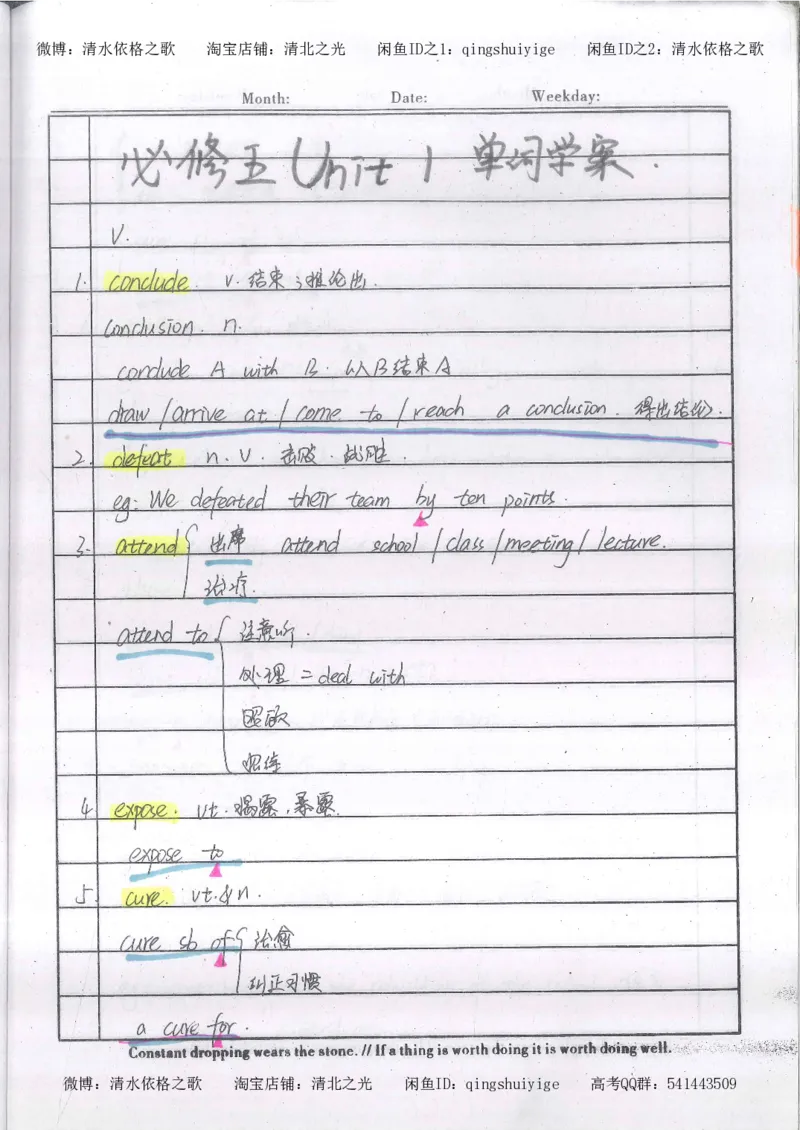 微博：清水依格之歌 淘宝店铺：清北之光 闲鱼ID之1：qingshuiyige 闲鱼ID之2：清水依格之歌
Month: Date: Weekday:
必修五 Unit 1 单词学案.
V.
1. conclude v. 结束；推论出.
conclusion. n.
conclude A with B. 以B结束A
draw / arrive at / come to / reach a conclusion. 得出结论.
2. defeat n. v. 击败. 战胜.
eg: We defeated their team by ten points.
3. attend { 出席 attend school / class / meeting / lecture.
治疗.
attend to { 注意听.
处理 = deal with
照顾
招待
4. expose. vt. 揭露, 暴露.
expose to
5. cure. vt. & n.
cure sb of { 治愈
纠正习惯
a cure for.
Constant dropping wears the stone. // If a thing is worth doing it is worth doing well.
微博：清水依格之歌 淘宝店铺：清北之光 闲鱼ID：qingshuiyige 高考QQ群：541443509